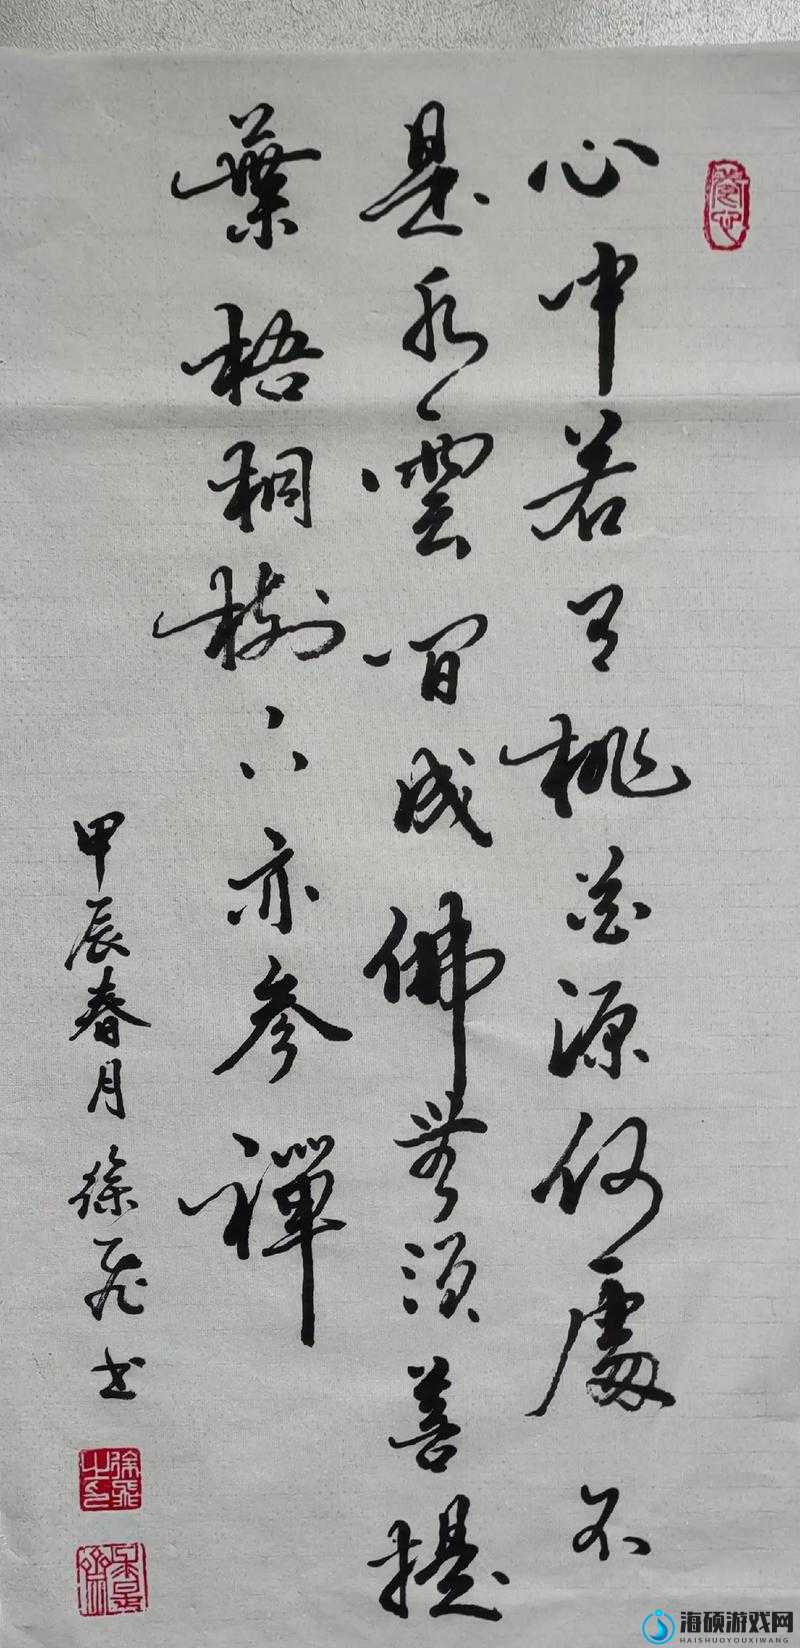 心中若有桃花源何處不
是水雲間成佛無須菩提
葉梧桐樹下亦參禪
甲辰春月徐飛书
徐飛之印
海硕游戏网
HAISHUOYOUXIWANG